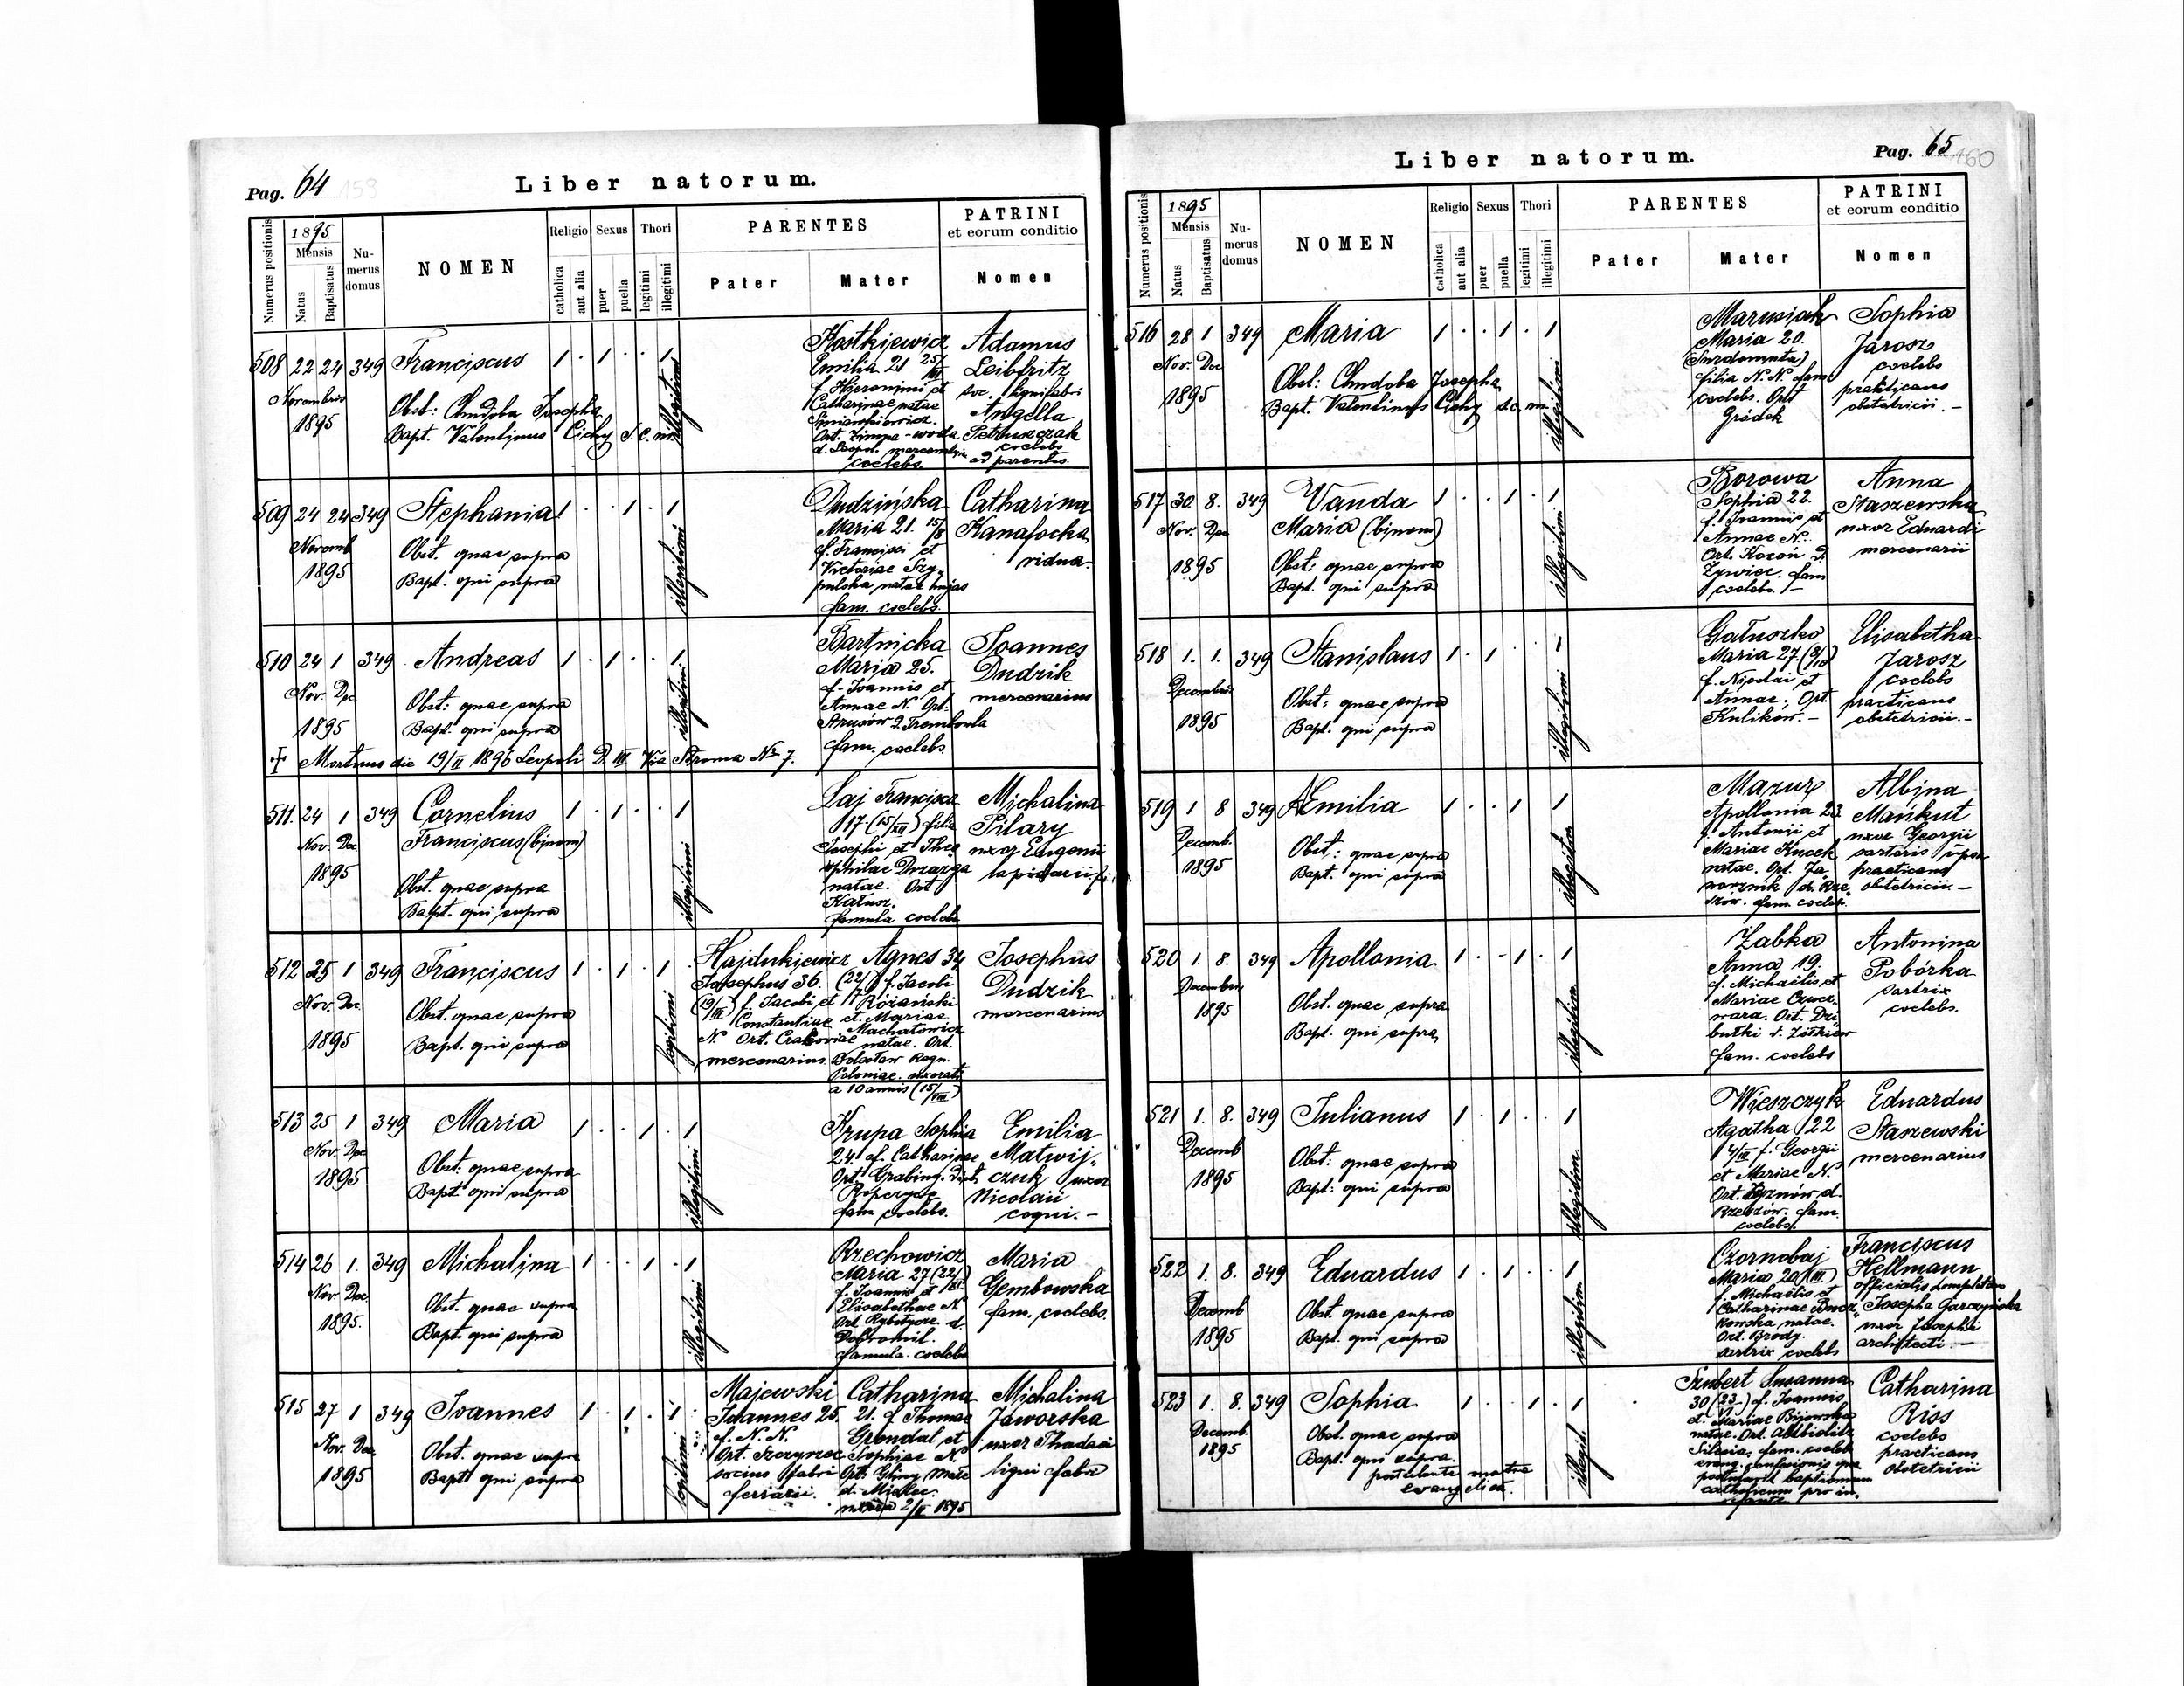 Pag. 64 159
Liber natorum.
Numerus positionis
1895.
Mensis
Natus
Baptisatus
Nu-
merus
domus
NOMEN
Religio
catholica
aut alia
Sexus
puer
puella
Thori
legitimi
illegitimi
PARENTES
Pater
Mater
PATRINI
et eorum conditio
Nomen
508 22 24 349 Franciscus 1 . 1 . . 1
Novembris
1895
Obst: Chudoba Josepha
Bapt. Valentinus Cichy S. c. m.
illegitimi
Kostkiewicz
Emilia 21 25/
f. Hieronimi et
Catharinae natae
Ort. Zimna-woda
d. Leopol.
coelebs.
Adamus
Leibfritz
soc. lignifabri
Angella
Petruszczak
coelebs
ad parentes.
509 24 24 349 Stephania 1 . . 1 . 1
Novemb
1895
Obst. quae supra
Bapt. qui supra
illegitimi
Dudzińska
Maria 21. 15/8
f. Francisci et
Victoriae Szy-
pulska natae hujas
fam. coelebs.
Catharina
Kanafocka
vidua.
510 24 1 349 Andreas 1 . 1 . . 1
Nov. Dec
1895
Obst: quae supra
Bapt. qui supra
illegitimi
Bartnicka
Maria 25.
f. Joannis et
Annae N. Ort.
Strusów d. Trembowla
fam. coelebs
Joannes
Dudzik
mercenarius
✝ Mortuus die 19/II 1896 Leopoli D. III Via Stroma No 7.
511. 24 1 349 Cornelius 1 . 1 . . 1
Franciscus (binom)
Nov. Dec
1895
Obst. quae supra
Bapt. qui supra
illegitimi
Laj Francisca
17 (15/XII) filia
Josephi et Theo
ophilae Drzazga
natae. Ort
Kałusz.
famula coelebs
Michalina
Pilary
uxor Eugenii
lapidarii
512 25 1 349 Franciscus 1 . 1 . 1 .
Nov. Dec.
1895
Obst. quae supra
Bapt. qui supra
legitimi
Hajdukiewicz
Josephus 36.
(19/III) f. Jacobi et
Constantiae
N. Ort. Cracoviae
mercenarius
Agnes 34
f. Jacobi
Różański
et Mariae
Machatowicz
natae. Ort.
Bolesław Regn.
Poloniae. uxorati
a 10 annis (15/VIII)
Josephus
Dudzik
mercenarius
513 25 1 349 Maria 1 . . 1 . 1
Nov. Dec
1895
Obst: quae supra
Bapt. qui supra
illegitimi
Krupa Sophia
24. f. Catharinae
Ort. Grabiny. Dist.
Ropczyce
fam coelebs.
Emilia
Matwij-
czuk uxor
Nicolaii
coqui.-
514 26 1. 349 Michalina 1 . . 1 . 1
Nov. Dec.
1895.
Obst. quae supra
Bapt. qui supra
illegitimi
Rzechowicz
Maria 27 (22/XI)
f. Joannis et
Elisabethae N.
Ort. Rybotycze d.
Dobromil.
famula coelebs
Maria
Gembowska
fam. coelebs.
515 27 1 349 Joannes 1 . 1 . 1 .
Nov. Dec.
1895
Obst. quae supra
Bapt qui supra
legitimi
Majewski
Joannes 25.
f. N. N.
Ort. Szczyrzec
socius fabri
ferrarii.
Catharina
21. f. Thomae
Grendal et
Sophiae N.
Ort: Gliny Małe
d. Mielec.
2/II 1895
Michalina
Jaworska
uxor Thadaei
ligni fabri
Liber natorum.
Pag. 65 160
Numerus positionis
1895
Mensis
Natus
Baptisatus
Nu-
merus
domus
NOMEN
Religio
catholica
aut alia
Sexus
puer
puella
Thori
legitimi
illegitimi
PARENTES
Pater
Mater
PATRINI
et eorum conditio
Nomen
516 28 1 349 Maria 1 . . 1 . 1
Nov. Dec
1895
Obst: Chudoba Josepha
Bapt. Valentinus Cichy s.c. m.
illegitimi
Marusiak
Maria 20.
(Surdomuta)
filia N. N. fam
coelebs. Ort
Gródek
Sophia
Jarosz
coelebs
prakticans
obstetricii.-
517 30. 8. 349 Vanda 1 . . 1 . 1
Maria (binom)
Nov. Dec
1895
Obst: quae supra
Bapt. qui supra
illegitimi
Borowa
Sophia 22.
f. Joannis et
Annae N.
Ort. Kocoń D.
Żywiec. fam
coelebs.-
Anna
Staszewska
uxor Eduardi
mercenarii
518 1. 1. 349 Stanislaus 1 . 1 . . 1
Decembris
1895
Obst: quae supra
Bapt. qui supra
illegitimi
Gałuszko
Maria 27.
f. Nicolai et
Annae. Ort.
Kulików.-
Elisabetha
Jarosz
coelebs
practicans
obstetricii.-
519 1 8 349 Aemilia 1 . . 1 . 1
Decemb.
1895
Obst: quae supra
Bapt. qui supra
Mazur
Apollonia 23
f. Antonii et
Mariae Kucek
natae. Ort. Ja-
wornik d. Rze-
szów. fam coelebs.
Albina
Mańkut
uxor Georgii
sartoris ipsa
practicans
obstetricii.-
520 1. 8. 349 Apollonia 1 . . 1 . 1
Decembris
1895
Obst. quae supra
Bapt. qui supra
illegitimi
Żabka
Anna 19.
f. Michaëlis et
Mariae
Ort. Dzi
butki d. Żółkiew
fam. coelebs
Antonina
Pobórka
sartrix
coelebs.
521 1. 8. 349 Julianus 1 . 1 . . 1
Decemb
1895
Obst: quae supra
Bapt: qui supra
illegitimi
Wieszczyk
Agatha 22
f. Georgii
et Mariae N.
Ort. Łyznów d.
Rzeszów. fam.
coelebs.
Eduardus
Staszewski
mercenarius
522 1. 8. 349 Eduardus 1 . 1 . . 1
Decemb
1895
Obst. quae supra
Bapt. qui supra
illegitim
Czornobaj
Maria 20 (III)
f. Michaëlis et
Catharinae
kowska natae.
Ort. Brody.
sartrix coelebs
Franciscus
Hellmann
officialis
Josepha Garczyńska
uxor Josephi
architecti.-
523 1. 8. 349 Sophia 1 . . 1 . 1
Decemb.
1895
Obst. quae supra
Bapt. qui supra.
postulante matre
evangelica.
illegit.
Szubert Susanna
30 f. Joannis
et Mariae
natae. Ort. Altbielitz
Silesia, fam. coelebs
evang. confessionis quae
postulavit baptismum
catholicum pro in-
fante
Catharina
Riss
coelebs
practicans
obstetricii